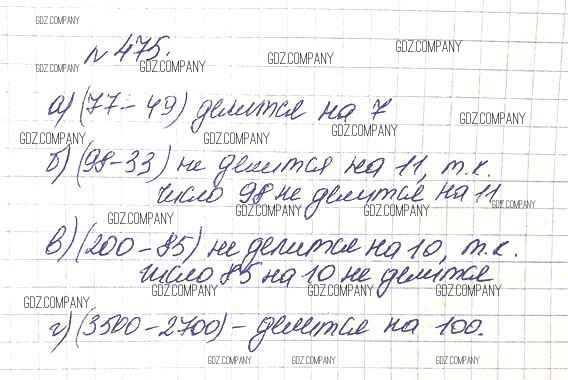 GDZ.COMPANY
№ 475.
GDZ.COMPANY GDZ.COMPANY
GDZ.COMPANY GDZ.COMPANY
а) (77 - 49) делится на 7
GDZ.COMPANY
GDZ.COMPANY GDZ.COMPANY GDZ.COMPANY
б) (98-33) не делится на 11, т.к.
число 98 не делится на 11.
GDZ.COMPANY GDZ.COMPANY GDZ.COMPANY GDZ.COMPANY
в) (200 - 85) не делится на 10, т.к.
число 85 на 10 не делится
GDZ.COMPANY GDZ.COMPANY GDZ.COMPANY GDZ.COMPANY
г) (3500 - 2700) - делится на 100.
GDZ.COMPANY GDZ.COMPANY GDZ.COMPANY